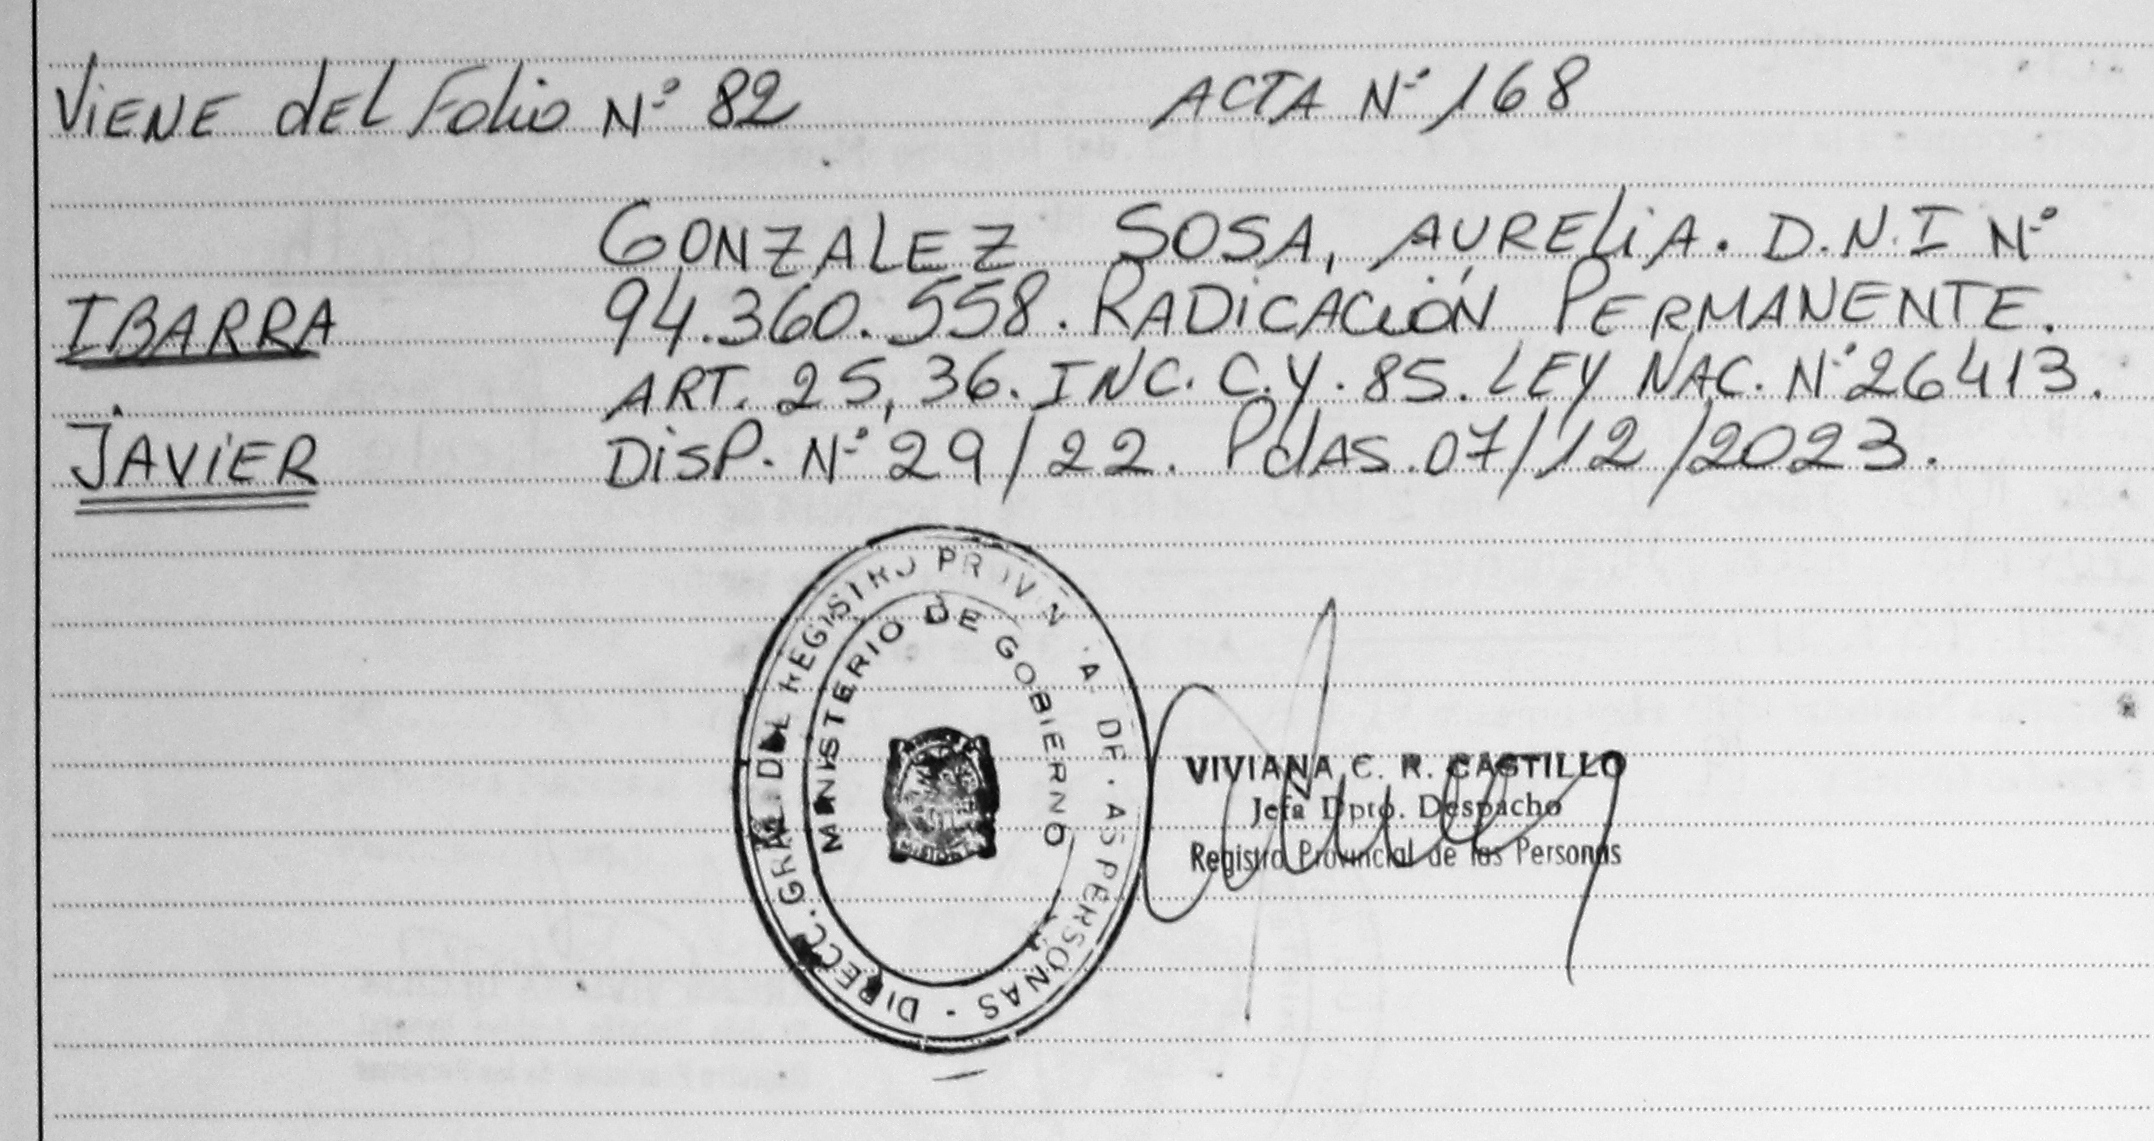 ViENE dEL Folio Nº 82 ACTA Nº 168
GONZALEZ SOSA, AURELiA. D.N.I Nº
IBARRA 94.360.558. RADiCACiÓN PERMANENTE.
ART. 25, 36. INC. C. Y. 85. LEY NAC. Nº 26413.
JAViER DiSP. Nº 29/22. PdAS. 07/12/2023.
DIRECC. GRAL. DEL REGISTRO PROVIN A DE AS PERSONAS -
MINISTERIO DE GOBIERNO
MISIONES
VIVIANA C. R. CASTILLO
Jefa Dpto. Despacho
Registro Provincial de las Personas